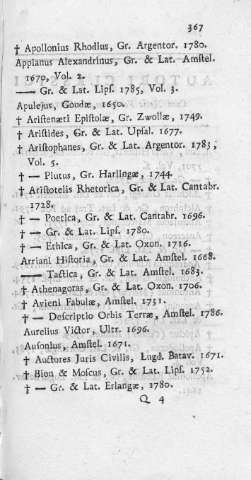 367
† Apollonius Rhodius, Gr. Argentor. 1780.
Appianus Alexandrinus, Gr. & Lat. Amſtel.
1670, Vol. 2.
—— Gr. & Lat. Lipſ. 1785, Vol. 3.
Apulejus, Goudæ, 1650.
† Ariſtenæti Epiſtolæ, Gr. Zwollæ, 1749.
† Ariſtides, Gr. & Lat. Upſal. 1677.
† Ariſtophanes, Gr. & Lat. Argentor. 1783,
Vol. 5.
† — Plutus, Gr. Harlingæ, 1744.
† Ariſtotelis Rhetorica, Gr. & Lat. Cantabr.
1728.
† — Poetica, Gr. & Lat. Cantabr. 1696.
† — Gr. & Lat. Lipſ. 1780.
† — Ethica, Gr. & Lat. Oxon. 1716.
Arriani Hiſtoria, Gr. & Lat. Amſtel. 1668.
—— Tactica, Gr. & Lat. Amſtel. 1683.
† Athenagoras, Gr. & Lat. Oxon. 1706.
† Avieni Fabulæ, Amſtel. 1731.
† — Deſcriptio Orbis Terræ, Amſtel. 1786.
Aurelius Victor, Ultr. 1696.
Auſonius, Amſtel. 1671.
† Auctores Juris Civilis, Lugd. Batav. 1671.
† Bion & Moſcus, Gr. & Lat. Lipſ. 1752.
† — Gr. & Lat. Erlangæ, 1780.
Q 4